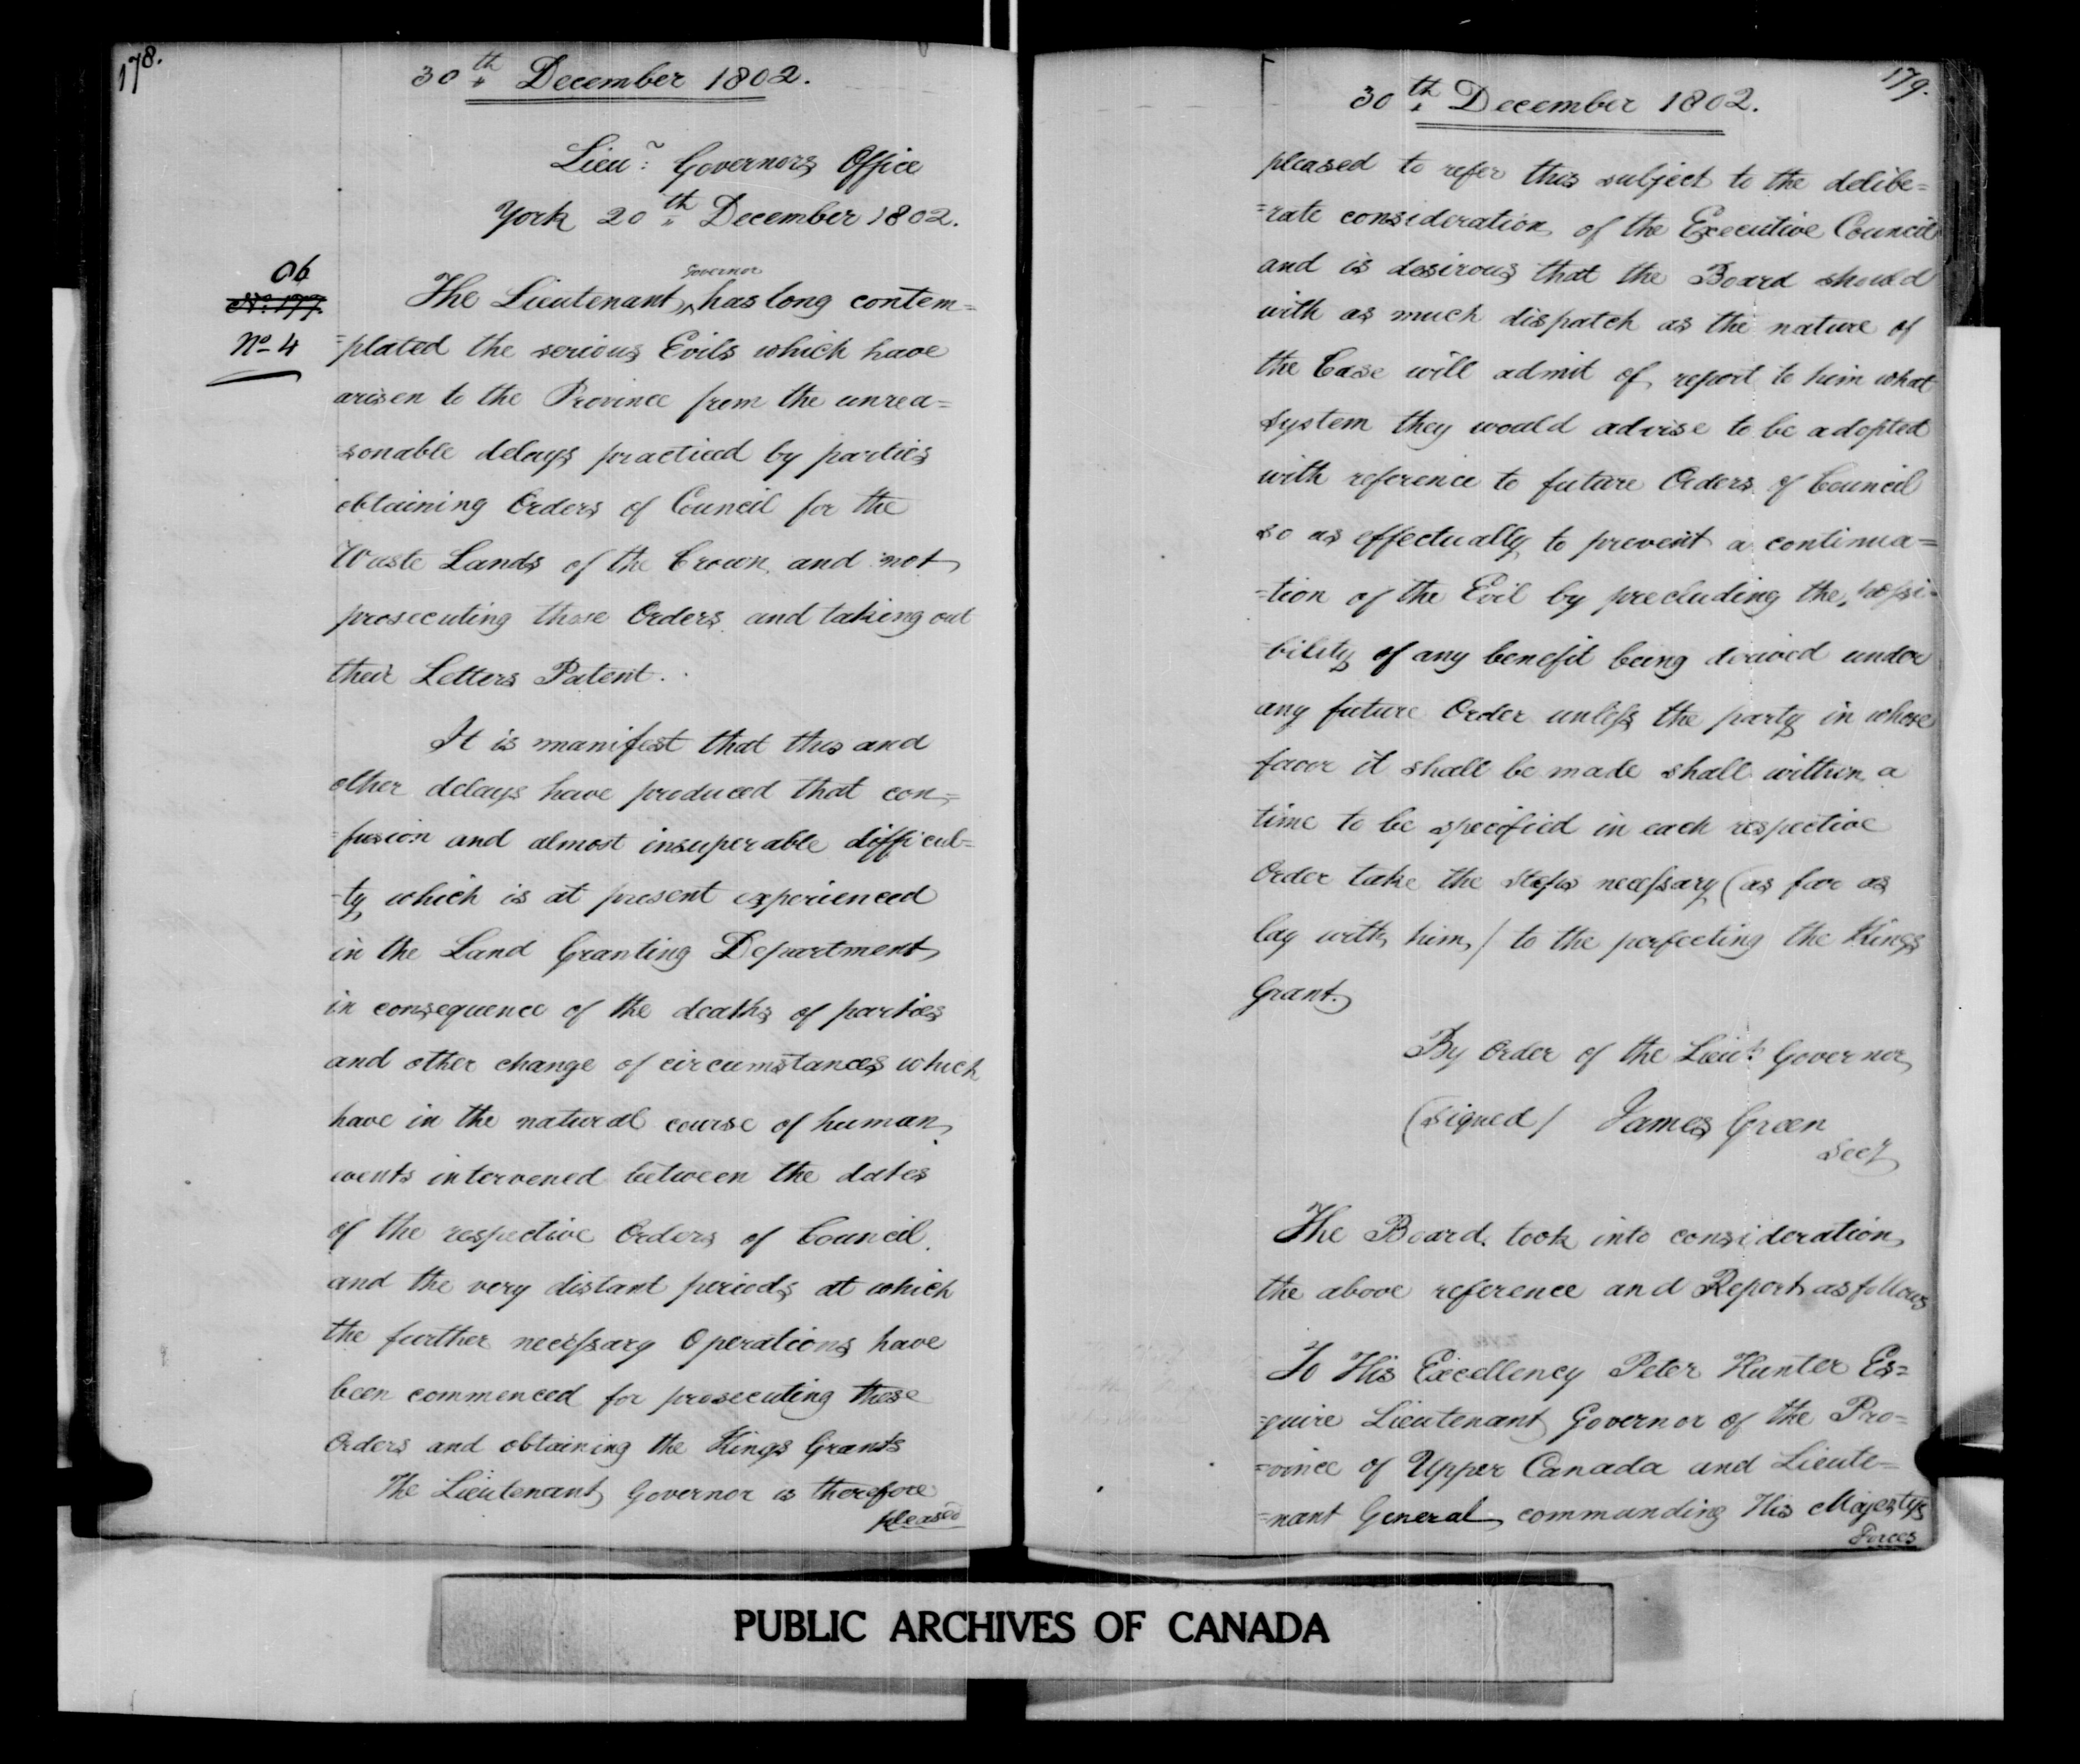 178.
30th December 1802.
Lieut: Governors Office
York 20th December 1802.
06
No. 177.
No 4
Governor
The Lieutenant ^ has long contem=
=plated the serious Evils which have
arisen to the Province from the unrea=
=sonable delays practiced by parties
obtaining Orders of Council for the
Waste Lands of the Crown and not
prosecuting those Orders and taking out
their Letters Patent.
It is manifest that this and
other delays have produced that con=
=fusion and almost insuperable difficul=
=ty which is at present experienced
in the Land Granting Department
in consequence of the deaths of parties
and other change of circumstances which
have in the natural course of human
events intervened between the dates
of the respective Orders of Council
and the very distant periods at which
the further necessary Operations have
been commenced for prosecuting these
Orders and obtaining the Kings Grants
The Lieutenant Governor is therefore
pleased
179.
30th December 1802.
pleased to refer this subject to the delibe=
=rate consideration of the Executive Council
and is desirous that the Board should
with as much dispatch as the nature of
the Case will admit of report to him what
system they would advise to be adopted
with reference to future Orders of Council
so as effectually to prevent a continua=
=tion of the Evil by precluding the possi=
=bility of any benefit being derived under
any future Order unless the party in whose
favor it shall be made shall within a
time to be specified in each respective
Order take the steps necessary (as far as
lay with him) to the perfecting the Kings
Grant.
By order of the Lieut. Governor
(signed) James Green
Secy
The Board took into consideration
the above reference and Report as follows
To His Excellency Peter Hunter Es=
=quire Lieutenant Governor of the Pro=
=vince of Upper Canada and Lieute=
=nant General commanding His Majestys
Forces
PUBLIC ARCHIVES OF CANADA